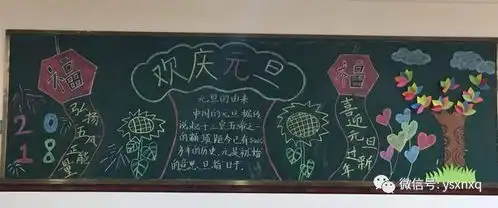 欢庆元旦
福
福
2018
弘扬五風正能量
喜迎元旦过新年
元旦的由来
中国的元旦据传
说起于三皇五帝之
一的颛顼距今已有3000
多年的历史.元是初始
的意思,旦指日子.
微信号: ysxnxq